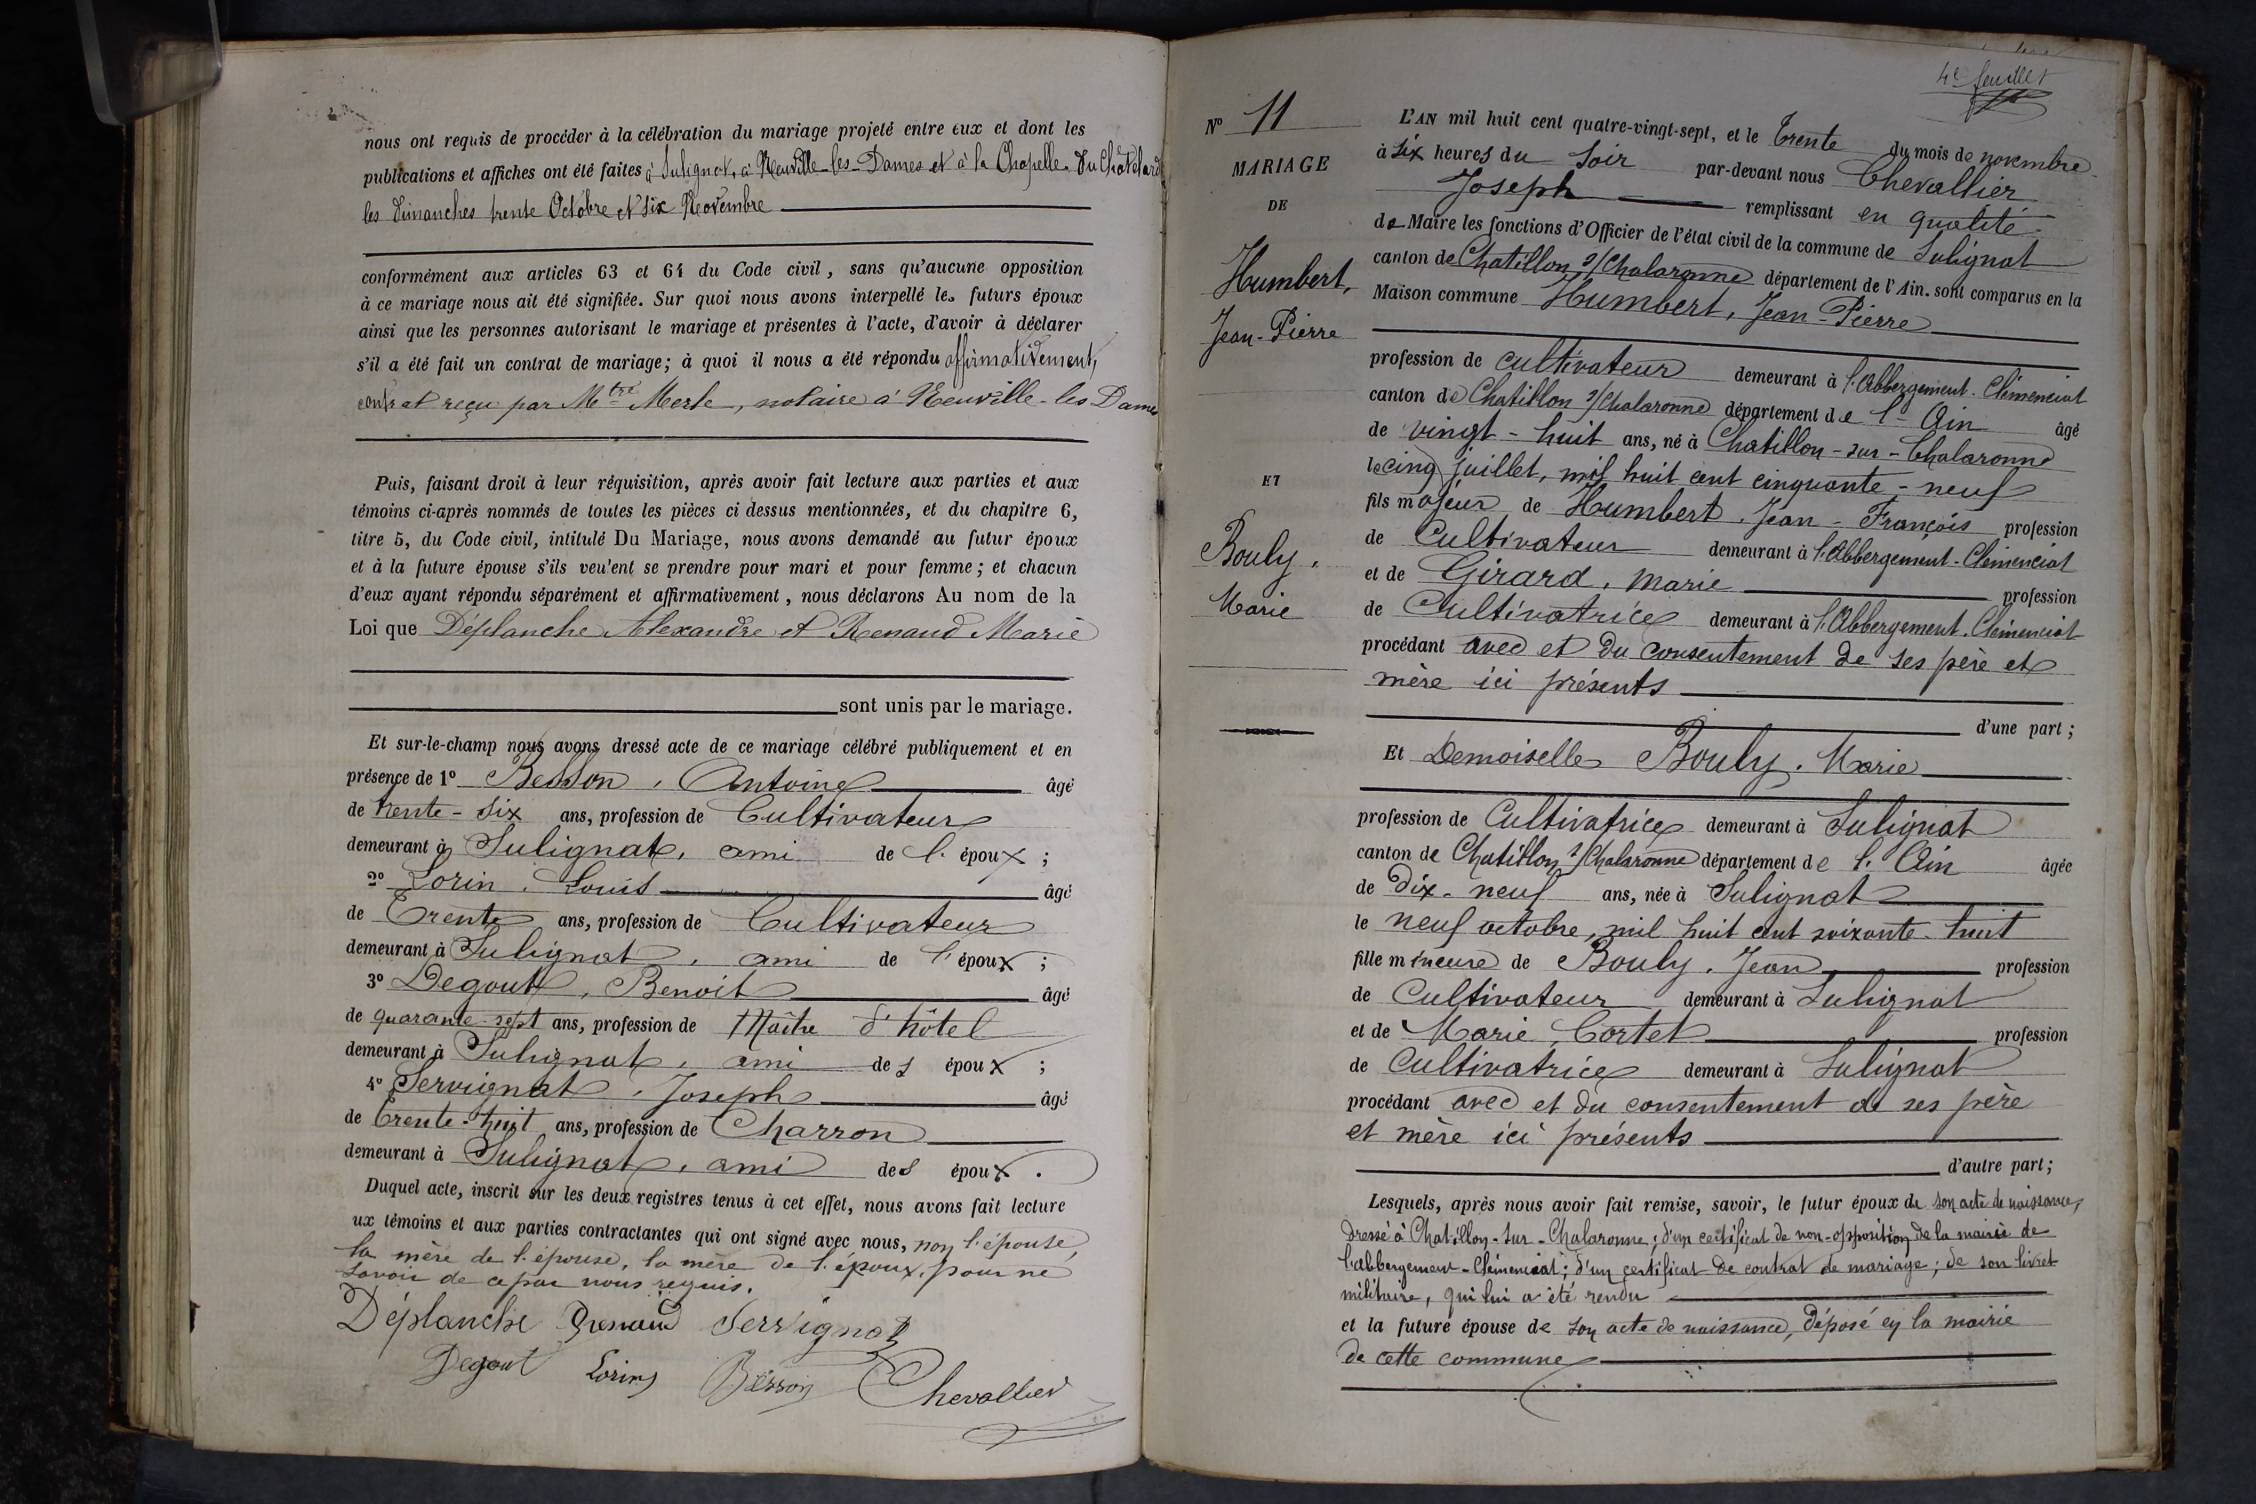 nous ont requis de procéder à la célébration du mariage projeté entre eux et dont les
publications et affiches ont été faites à Sulignat, à Neuville-les-Dames et à la Chapelle-du-Châtelard
les dimanches trente Octobre et six Novembre
conformément aux articles 63 et 64 du Code civil, sans qu'aucune opposition
à ce mariage nous ait été signifiée. Sur quoi nous avons interpellé les futurs époux
ainsi que les personnes autorisant le mariage et présentes à l'acte, d'avoir à déclarer
s'il a été fait un contrat de mariage; à quoi il nous a été répondu affirmativement,
contrat reçu par Mtre Merle, notaire à Neuville-les Dames
Puis, faisant droit à leur réquisition, après avoir fait lecture aux parties et aux
témoins ci-après nommés de toutes les pièces ci dessus mentionnées, et du chapitre 6,
titre 5, du Code civil, intitulé Du Mariage, nous avons demandé au futur époux
et à la future épouse s'ils veu'ent se prendre pour mari et pour femme; et chacun
d'eux ayant répondu séparément et affirmativement, nous déclarons Au nom de la
Loi que Déplanche Alexandre et Renaud Marie
sont unis par le mariage.
Et sur-le-champ nous avons dressé acte de ce mariage célébré publiquement et en
présence de 1° Besson, Antoine âgé
de trente-six ans, profession de Cultivateur
demeurant à Sulignat, ami de l'époux;
2° Lorin, Louis âgé
de Trente ans, profession de Cultivateur
demeurant à Sulignat, ami de l'époux;
3° Degout, Benoit âgé
de quarante-sept ans, profession de Maître d'hôtel
demeurant à Sulignat, ami des époux;
4° Servignat, Joseph âgé
de trente-huit ans, profession de Charron
demeurant à Sulignat, ami des époux.
Duquel acte, inscrit sur les deux registres tenus à cet effet, nous avons fait lecture
ux témoins et aux parties contractantes qui ont signé avec nous, non l'épouse,
la mère de l'épouse, la mère de l'époux, pour ne
savoir de ce par nous requis.
Déplanche Renaud Servignat
Degout Lorin Besson Chevallier
4e feuillet
N° 11
MARIAGE
DE
Humbert,
Jean-Pierre
ET
Bouly,
Marie
L'AN mil huit cent quatre-vingt-sept, et le Trente du mois de novembre
à six heures du soir par-devant nous Chevallier
Joseph remplissant en qualité
de Maire les fonctions d'Officier de l'état civil de la commune de Sulignat
canton de Chatillon s/Chalaronne département de l'Ain. sont comparus en la
Maison commune Humbert, Jean-Pierre
profession de cultivateur demeurant à l'Abbergement-Clémenciat
canton de Chatillon s/Chalaronne département de l'Ain âgé
de vingt-huit ans, né à Chatillon-sur-Chalaronne
le cinq juillet, mil huit cent cinquante-neuf
fils majeur de Humbert, Jean-François profession
de Cultivateur demeurant à l'Abbergement-Clémenciat
et de Girard, Marie profession
de Cultivatrice demeurant à l'Abbergement-Clémenciat
procédant avec et du consentement de ses père et
mère ici présents
d'une part;
Et Demoiselle Bouly, Marie
profession de Cultivatrice demeurant à Sulignat
canton de Chatillon s/Chalaronne département de l'Ain âgée
de dix-neuf ans, née à Sulignat
le neuf octobre, mil huit cent soixante-huit
fille mineure de Bouly, Jean profession
de Cultivateur demeurant à Sulignat
et de Marie, Cortet profession
de Cultivatrice demeurant à Sulignat
procédant avec et du consentement de ses père
et mère ici présents
d'autre part;
Lesquels, après nous avoir fait remise, savoir, le futur époux de son acte de naissance,
dressé à Chatillon-sur-Chalaronne; d'un certificat de non-opposition de la mairie de
l'abbergement-Clémenciat; d'un certificat de contrat de mariage; de son livret
militaire, qui lui a été rendu
et la future épouse de son acte de naissance, déposé en la mairie
de cette commune